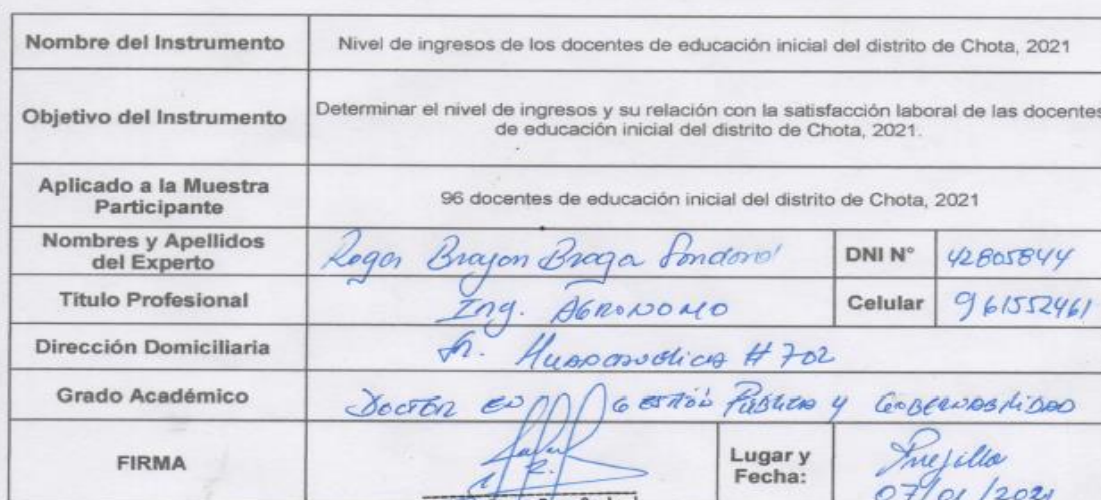 Nombre del Instrumento
Nivel de ingresos de los docentes de educación inicial del distrito de Chota, 2021
Objetivo del Instrumento
Determinar el nivel de ingresos y su relación con la satisfacción laboral de las docentes
de educación inicial del distrito de Chota, 2021.
Aplicado a la Muestra
Participante
96 docentes de educación inicial del distrito de Chota, 2021
Nombres y Apellidos
del Experto
Roger Brayon Braga
DNI N°
42805844
Título Profesional
Ing. AGRONOMO
Celular
961552461
Dirección Domiciliaria
Jr. # 702
Grado Académico
DOCTOR EN GESTIÓN PÚBLICA Y GOBERNABILIDAD
FIRMA
Lugar y
Fecha:
Trujillo
07/01/2021